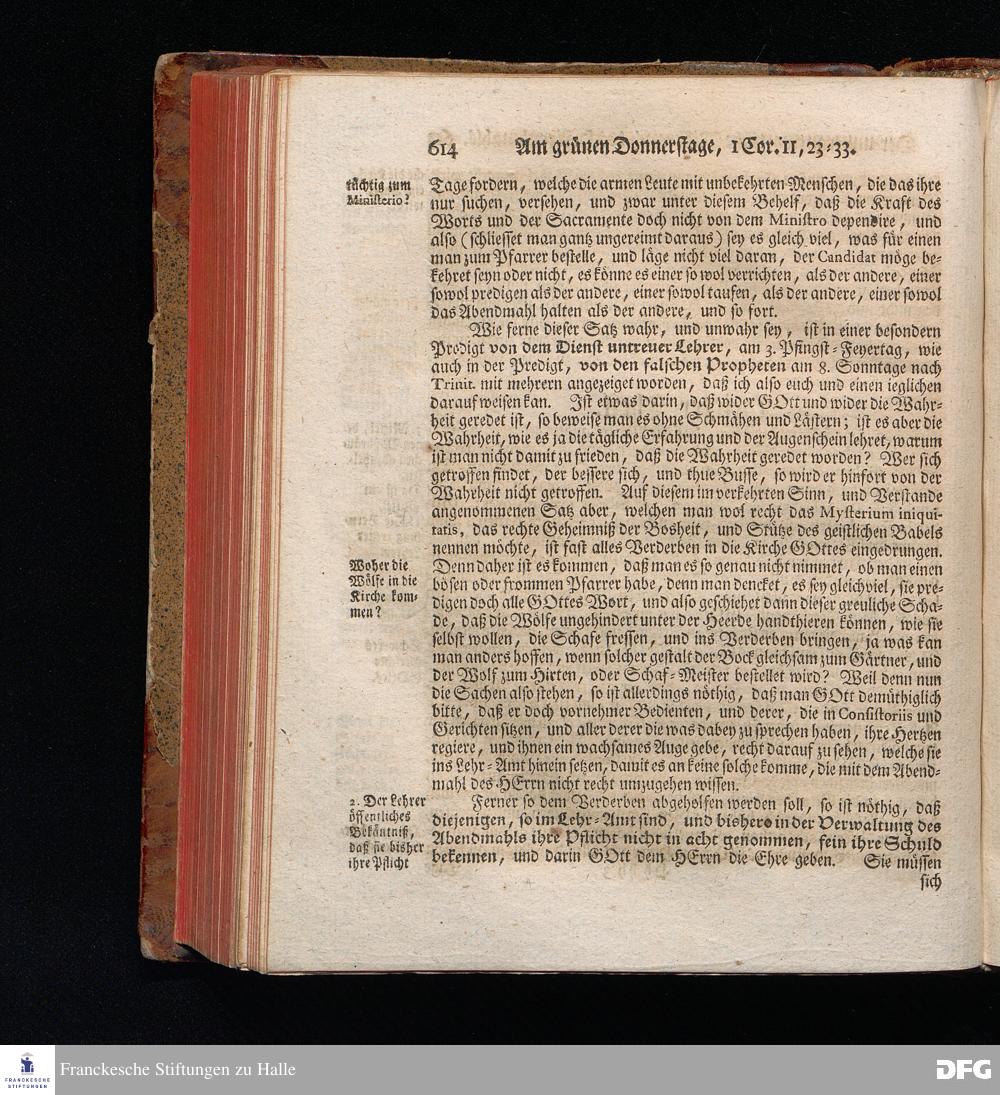 614 Am grünen Donnerstage, 1 Cor. 11, 23-33.
tüchtig zum
Ministerio?
Tage fordern, welche die armen Leute mit unbekehrten Menschen, die das ihre
nur suchen, versehen, und zwar unter diesem Behelf, daß die Kraft des
Worts und der Sacramente doch nicht von dem Ministro dependire, und
also (schliesset man gantz ungereimt daraus) sey es gleich viel, was für einen
man zum Pfarrer bestelle, und läge nicht viel daran, der Candidat möge be-
kehret seyn oder nicht, es könne es einer so wol verrichten, als der andere, einer
sowol predigen als der andere, einer sowol taufen, als der andere, einer sowol
das Abendmahl halten als der andere, und so fort.
Wie ferne dieser Satz wahr, und unwahr sey, ist in einer besondern
Predigt von dem Dienst untreuer Lehrer, am 3. Pfingst-Feyertag, wie
auch in der Predigt, von den falschen Propheten am 8. Sonntage nach
Trinit. mit mehrern angezeiget worden, daß ich also euch und einen ieglichen
darauf weisen kan. Ist etwas darin, daß wider GOtt und wider die Wahr-
heit geredet ist, so beweise man es ohne Schmähen und Lästern; ist es aber die
Wahrheit, wie es ja die tägliche Erfahrung und der Augenschein lehret, warum
ist man nicht damit zu frieden, daß die Wahrheit geredet worden? Wer sich
getroffen findet, der bessere sich, und thue Busse, so wird er hinfort von der
Wahrheit nicht getroffen. Auf diesem im verkehrten Sinn, und Verstande
angenommenen Satz aber, welchen man wol recht das Mysterium iniqui-
tatis, das rechte Geheimniß der Bosheit, und Stütze des geistlichen Babels
nennen möchte, ist fast alles Verderben in die Kirche GOttes eingedrungen.
Woher die
Wölfe in die
Kirche kom-
men?
Denn daher ist es kommen, daß man es so genau nicht nimmet, ob man einen
bösen oder frommen Pfarrer habe, denn man dencket, es sey gleich viel, sie pre-
digen doch alle GOttes Wort, und also geschiehet dann dieser greuliche Scha-
de, daß die Wölfe ungehindert unter der Heerde handthieren können, wie sie
selbst wollen, die Schafe fressen, und ins Verderben bringen, ja was kan
man anders hoffen, wenn solcher gestalt der Bock gleichsam zum Gärtner, und
der Wolf zum Hirten, oder Schaf-Meister bestellet wird? Weil denn nun
die Sachen also stehen, so ist allerdings nöthig, daß man GOtt demüthiglich
bitte, daß er doch vornehmer Bedienten, und derer, die in Consistoriis und
Gerichten sitzen, und aller derer die was dabey zu sprechen haben, ihre Hertzen
regiere, und ihnen ein wachsames Auge gebe, recht darauf zu sehen, welche sie
ins Lehr-Amt hinein setzen, damit es an keine solche komme, die mit dem Abend-
mahl des HErrn nicht recht umzugehen wissen.
2. Der Lehrer
öffentliches
Bekäntniß,
daß sie bisher
ihre Pflicht
Ferner so dem Verderben abgeholfen werden soll, so ist nöthig, daß
diejenigen, so im Lehr-Amt sind, und bishero in der Verwaltung des
Abendmahls ihre Pflicht nicht in acht genommen, fein ihre Schuld
bekennen, und darin GOtt dem HErrn die Ehre geben. Sie müssen
sich
FRANCKESCHE
STIFTUNGEN
Franckesche Stiftungen zu Halle
DFG